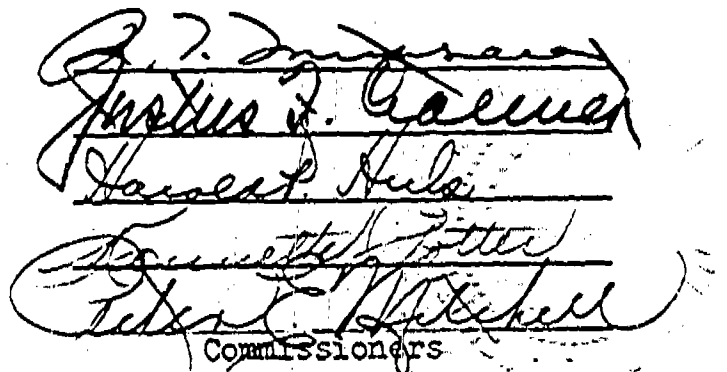 Justus F. Craemer
Harold P. Huls
Kenneth Potter
Peter E. Mitchell
Commissioners